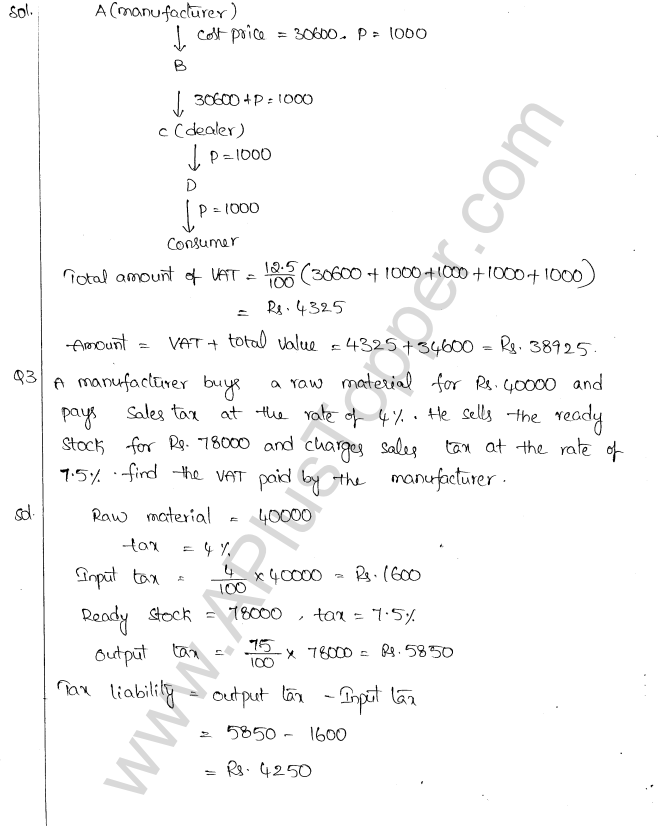 Sol. A (manufacturer)
↓ cost price = 30600. P = 1000
B
↓ 30600 + P = 1000
C (dealer)
↓ P = 1000
D
↓ P = 1000
Consumer
Total amount of VAT = 12.5/100 (30600 + 1000 + 1000 + 1000 + 1000)
= Rs. 4325
Amount = VAT + total value = 4325 + 34600 = Rs. 38925.
Q3 A manufacturer buys a raw material for Rs. 40000 and
pays Sales tax at the rate of 4%. He sells the ready
stock for Rs. 78000 and charges sales tax at the rate of
7.5%. find the VAT paid by the manufacturer.
Sol. Raw material = 40000
tax = 4%
Input tax = 4/100 × 40000 = Rs. 1600
Ready stock = 78000, tax = 7.5%
Output tax = 75/100 × 78000 = Rs. 5850
Tax liability = output tax - Input tax
= 5850 - 1600
= Rs. 4250
www.APlusTopper.com